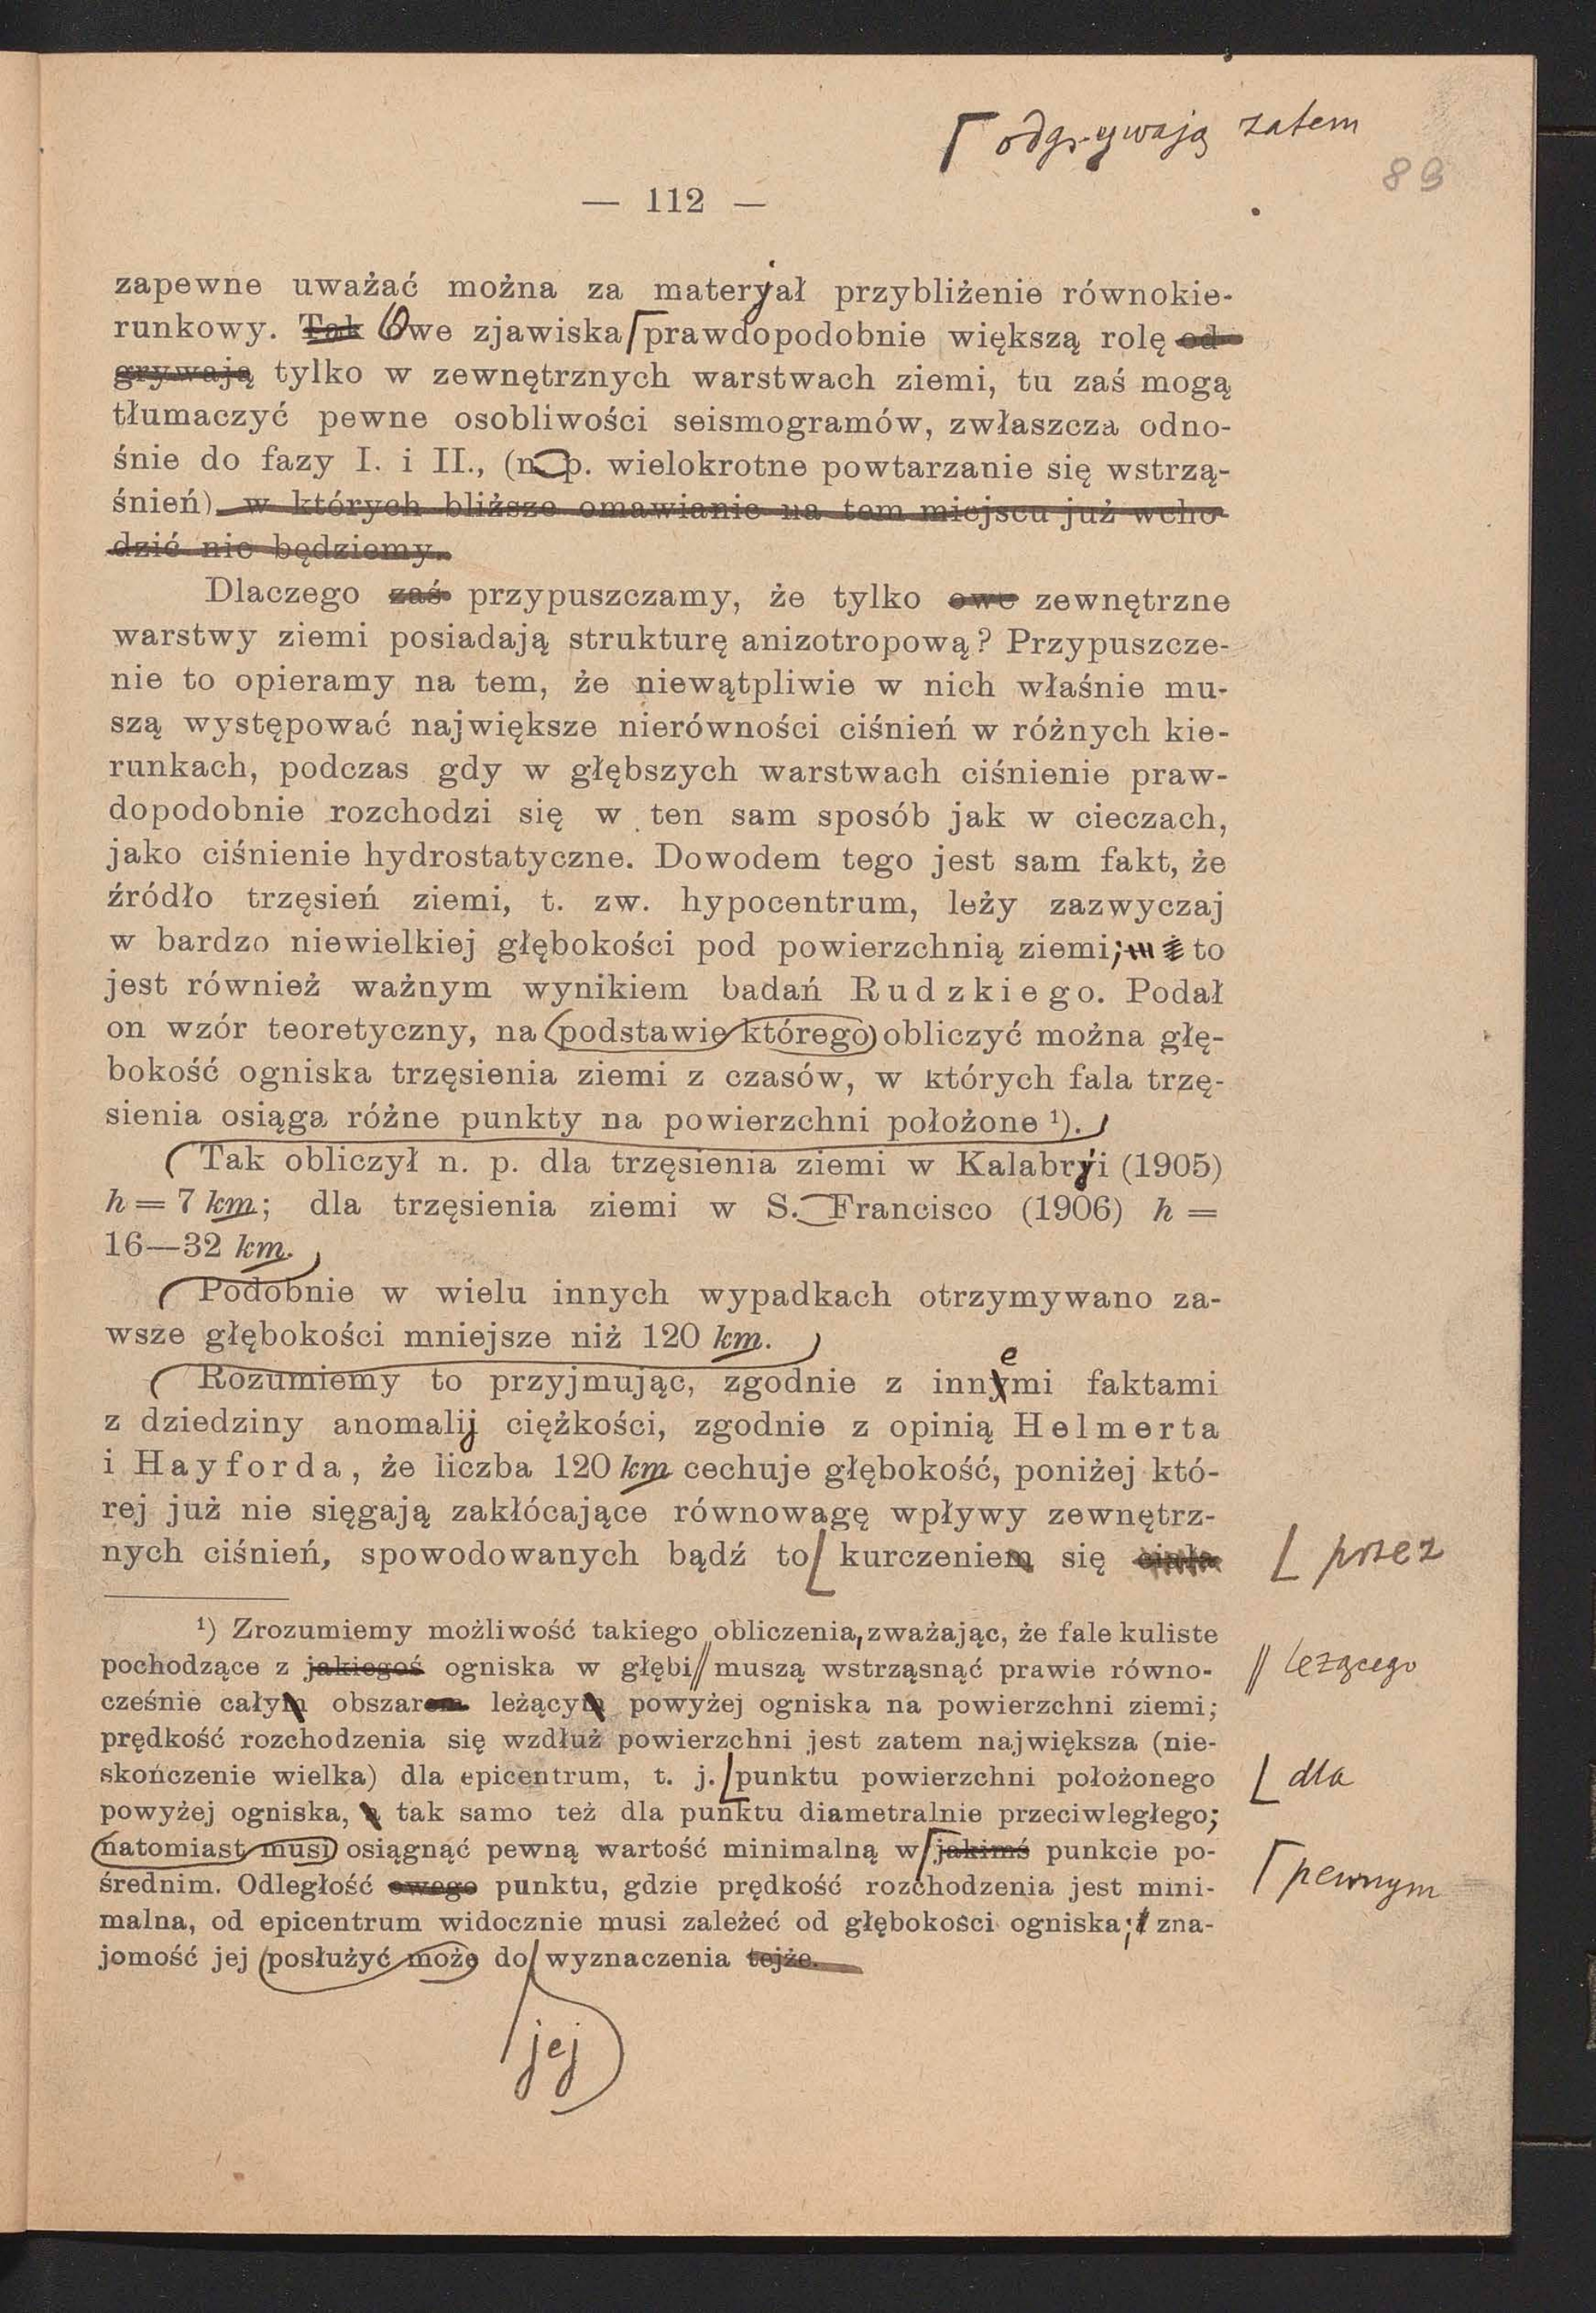 ⌈ odgrywają zatem
89
— 112 —
zapewne uważać można za materjał przybliżenie równokie-
runkowy. Tak Owe zjawiska⌈prawdopodobnie większą rolę od-
grywają tylko w zewnętrznych warstwach ziemi, tu zaś mogą
tłumaczyć pewne osobliwości seismogramów, zwłaszcza odno-
śnie do fazy I. i II., (n. p. wielokrotne powtarzanie się wstrzą-
śnień). w których bliższe omawianie na tem miejscu już wcho-
dzić nie będziemy.
Dlaczego zaś przypuszczamy, że tylko owe zewnętrzne
warstwy ziemi posiadają strukturę anizotropową? Przypuszcze-
nie to opieramy na tem, że niewątpliwie w nich właśnie mu-
szą występować największe nierówności ciśnień w różnych kie-
runkach, podczas gdy w głębszych warstwach ciśnienie praw-
dopodobnie rozchodzi się w ten sam sposób jak w cieczach,
jako ciśnienie hydrostatyczne. Dowodem tego jest sam fakt, że
źródło trzęsień ziemi, t. zw. hypocentrum, leży zazwyczaj
w bardzo niewielkiej głębokości pod powierzchnią ziemi; to
jest również ważnym wynikiem badań Rudzkiego. Podał
on wzór teoretyczny, na podstawie którego obliczyć można głę-
bokość ogniska trzęsienia ziemi z czasów, w których fala trzę-
sienia osiąga różne punkty na powierzchni położone ¹).
Tak obliczył n. p. dla trzęsienia ziemi w Kalabrji (1905)
h = 7 km; dla trzęsienia ziemi w S. Francisco (1906) h =
16—32 km.
Podobnie w wielu innych wypadkach otrzymywano za-
wsze głębokości mniejsze niż 120 km.
e
Rozumiemy to przyjmując, zgodnie z innymi faktami
z dziedziny anomalij ciężkości, zgodnie z opinią Helmerta
i Hayforda, że liczba 120 km cechuje głębokość, poniżej któ-
rej już nie sięgają zakłócające równowagę wpływy zewnętrz-
nych ciśnień, spowodowanych bądź to⌊ kurczeniem się ciała ⌊ przez
¹) Zrozumiemy możliwość takiego obliczenia, zważając, że fale kuliste
pochodzące z jakiegoś ogniska w głębi // muszą wstrząsnąć prawie równo- // leżącego
cześnie całym obszarem leżącym powyżej ogniska na powierzchni ziemi;
prędkość rozchodzenia się wzdłuż powierzchni jest zatem największa (nie-
skończenie wielka) dla epicentrum, t. j. ⌊punktu powierzchni położonego ⌊ dla
powyżej ogniska, a tak samo też dla punktu diametralnie przeciwległego;
natomiast musi osiągnąć pewną wartość minimalną w⌈jakimś punkcie po- ⌈ pewnym
średnim. Odległość owego punktu, gdzie prędkość rozchodzenia jest mini-
malna, od epicentrum widocznie musi zależeć od głębokości ogniska; zna-
jomość jej posłużyć może do wyznaczenia tejże.
jej